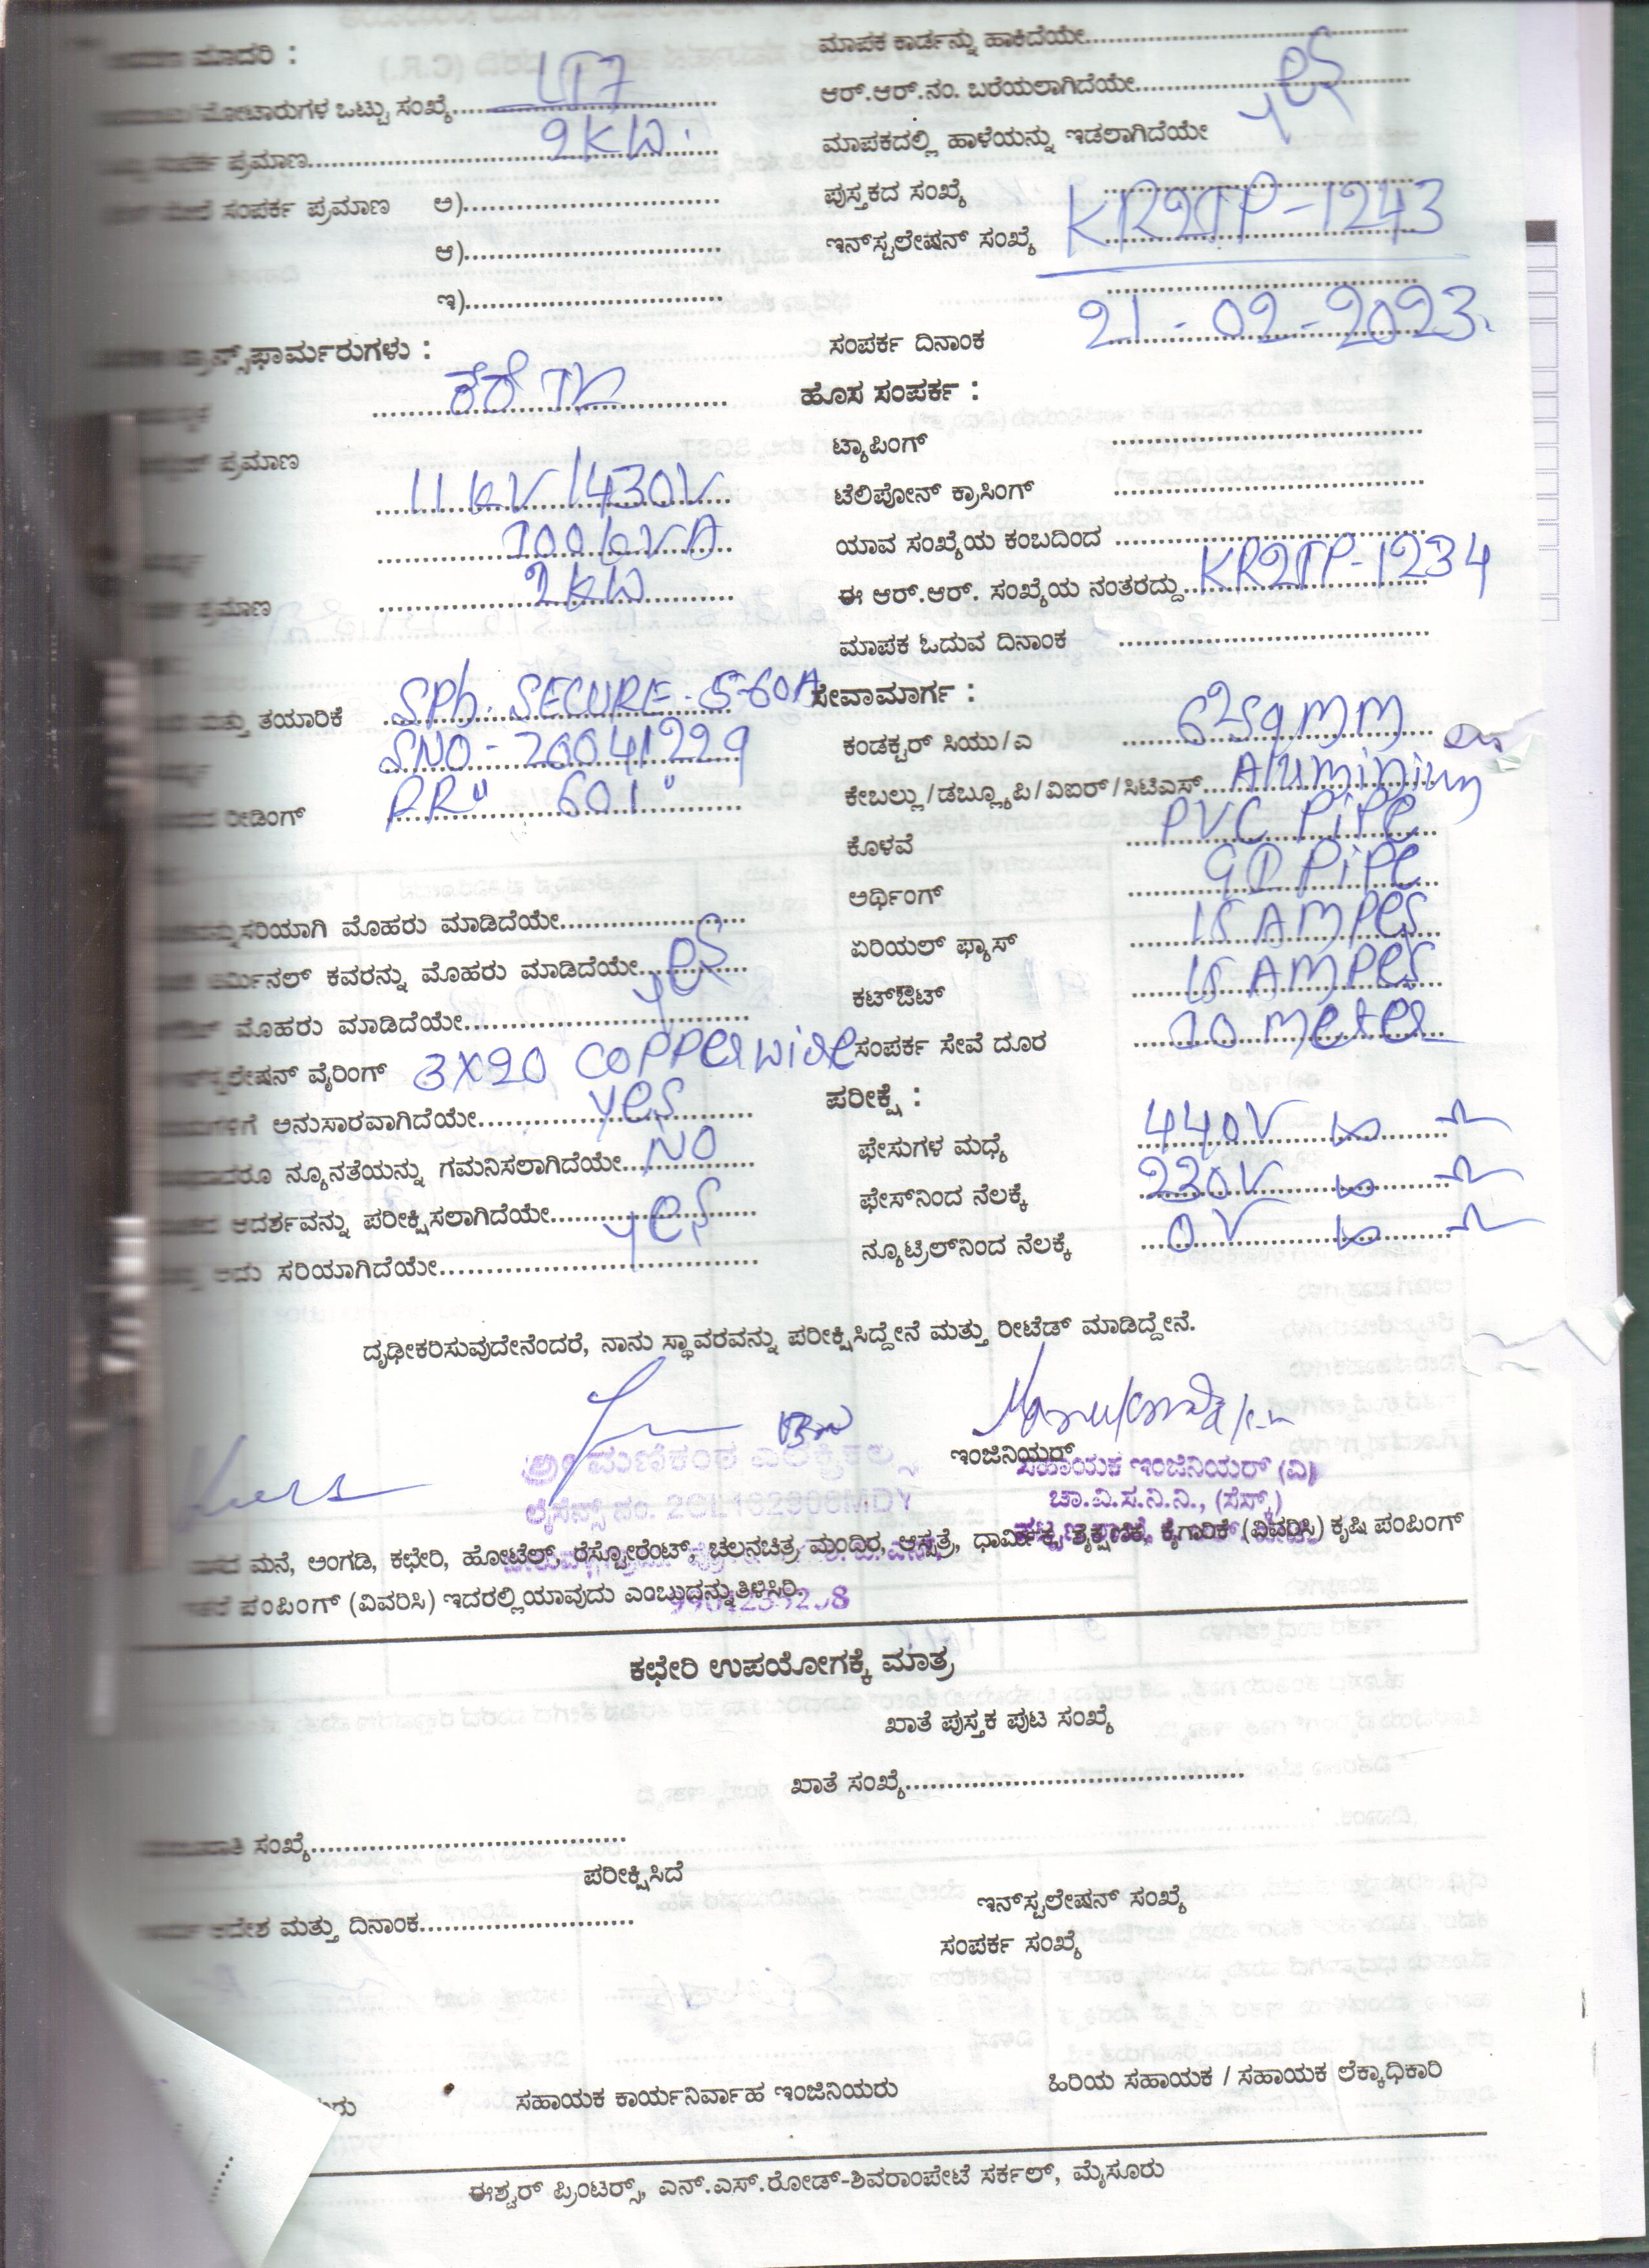 ಮಾದರಿ :
LT7
ಮೋಟಾರುಗಳ ಒಟ್ಟು ಸಂಖ್ಯೆ
2KW.
ಸಂಪರ್ಕ ಪ್ರಮಾಣ
ಸಂಪರ್ಕ ಪ್ರಮಾಣ ಅ)
ಆ)
ಇ)
ಟ್ರಾನ್ಸ್‌ಫಾರ್ಮರುಗಳು :
ಕೆರೆ TC
ಪ್ರಮಾಣ
11 kV / 430V
100 kVA
2KW
ಪ್ರಮಾಣ
ಮತ್ತು ತಯಾರಿಕೆ SPh. SECURE - 5-60A
SNO - 26041229
ರೀಡಿಂಗ್ RR" 601.
ಸರಿಯಾಗಿ ಮೊಹರು ಮಾಡಿದೆಯೇ
ಟರ್ಮಿನಲ್ ಕವರನ್ನು ಮೊಹರು ಮಾಡಿದೆಯೇ yes
ಮೊಹರು ಮಾಡಿದೆಯೇ
ವೈರಿಂಗ್ 3X20 COPPER wire
ಅನುಸಾರವಾಗಿದೆಯೇ yes
ನ್ಯೂನತೆಯನ್ನು ಗಮನಿಸಲಾಗಿದೆಯೇ NO
ಆದರ್ಶವನ್ನು ಪರೀಕ್ಷಿಸಲಾಗಿದೆಯೇ yes
ಅದು ಸರಿಯಾಗಿದೆಯೇ
ಮಾಪಕ ಕಾರ್ಡನ್ನು ಹಾಕಿದೆಯೇ
ಆರ್.ಆರ್.ನಂ. ಬರೆಯಲಾಗಿದೆಯೇ yes
ಮಾಪಕದಲ್ಲಿ ಹಾಳೆಯನ್ನು ಇಡಲಾಗಿದೆಯೇ
ಪುಸ್ತಕದ ಸಂಖ್ಯೆ
ಇನ್‌ಸ್ಟಲೇಷನ್ ಸಂಖ್ಯೆ KR2IP-1243
ಸಂಪರ್ಕ ದಿನಾಂಕ 21-02-2023.
ಹೊಸ ಸಂಪರ್ಕ :
ಟ್ಯಾಪಿಂಗ್
ಟೆಲಿಪೋನ್ ಕ್ರಾಸಿಂಗ್
ಯಾವ ಸಂಖ್ಯೆಯ ಕಂಬದಿಂದ
ಈ ಆರ್.ಆರ್. ಸಂಖ್ಯೆಯ ನಂತರದ್ದು KR2IP-1234
ಮಾಪಕ ಓದುವ ದಿನಾಂಕ
ಸೇವಾಮಾರ್ಗ :
ಕಂಡಕ್ಟರ್ ಸಿಯು/ಎ
ಕೇಬಲ್ಲು/ಡಬ್ಲ್ಯೂಪಿ/ವಿಐರ್/ಸಿಟಿಎಸ್ Aluminium
ಕೊಳವೆ PVC PiPe
ಅರ್ಥಿಂಗ್ GI PiPe
ಏರಿಯಲ್ ಫ್ಯಾಸ್ 15 AMPes
ಕಟ್‌ಔಟ್ 15 AMPes
ಸಂಪರ್ಕ ಸೇವೆ ದೂರ 10 meter
ಪರೀಕ್ಷೆ :
ಫೇಸುಗಳ ಮಧ್ಯೆ 440V
ಫೇಸ್‌ನಿಂದ ನೆಲಕ್ಕೆ 230V
ನ್ಯೂಟ್ರಿಲ್‌ನಿಂದ ನೆಲಕ್ಕೆ 0V
ದೃಢೀಕರಿಸುವುದೇನೆಂದರೆ, ನಾನು ಸ್ಥಾವರವನ್ನು ಪರೀಕ್ಷಿಸಿದ್ದೇನೆ ಮತ್ತು ರೀಟೆಡ್ ಮಾಡಿದ್ದೇನೆ.
ಶ್ರೀ ಮಣಿಕಂಠ ಎಲೆಕ್ಟ್ರಿಕಲ್ಸ್
ಲೈಸೆನ್ಸ್ ನಂ.
ಇಂಜಿನಿಯರ್
ಸಹಾಯಕ ಇಂಜಿನಿಯರ್ (ವಿ)
ಚಾ.ವಿ.ಸ.ನಿ.ನಿ., (ಸೆಸ್ಕ್)
ಮನೆ, ಅಂಗಡಿ, ಕಛೇರಿ, ಹೋಟೆಲ್, ರೆಸ್ಟೋರೆಂಟ್, ಚಲನಚಿತ್ರ ಮಂದಿರ, ಆಸ್ಪತ್ರೆ, ಧಾರ್ಮಿಕ, ಶೈಕ್ಷಣಿಕ, ಕೈಗಾರಿಕೆ (ವಿವರಿಸಿ) ಕೃಷಿ ಪಂಪಿಂಗ್
ಪಂಪಿಂಗ್ (ವಿವರಿಸಿ) ಇದರಲ್ಲಿ ಯಾವುದು ಎಂಬುದನ್ನು ತಿಳಿಸಿರಿ.
ಕಛೇರಿ ಉಪಯೋಗಕ್ಕೆ ಮಾತ್ರ
ಖಾತೆ ಪುಸ್ತಕ ಪುಟ ಸಂಖ್ಯೆ
ಖಾತೆ ಸಂಖ್ಯೆ
ಸಂಖ್ಯೆ
ಪರೀಕ್ಷಿಸಿದೆ
ಇನ್‌ಸ್ಟಲೇಷನ್ ಸಂಖ್ಯೆ
ಆದೇಶ ಮತ್ತು ದಿನಾಂಕ
ಸಂಪರ್ಕ ಸಂಖ್ಯೆ
ಸಹಾಯಕ ಕಾರ್ಯನಿರ್ವಾಹ ಇಂಜಿನಿಯರು
ಹಿರಿಯ ಸಹಾಯಕ / ಸಹಾಯಕ ಲೆಕ್ಕಾಧಿಕಾರಿ
ಈಶ್ವರ್ ಪ್ರಿಂಟರ್ಸ್, ಎನ್.ಎಸ್.ರೋಡ್-ಶಿವರಾಂಪೇಟೆ ಸರ್ಕಲ್, ಮೈಸೂರು